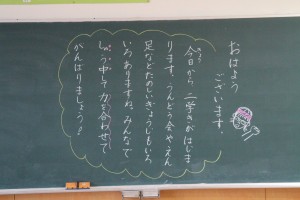 おはよう
ございます。
今日から、二学きがはじま
ります。うんどう会や、えん
足などたのしいぎょうじもいろ
いろありますね。みんなで
しゅう中して力を合わせて
がんばりましょう！